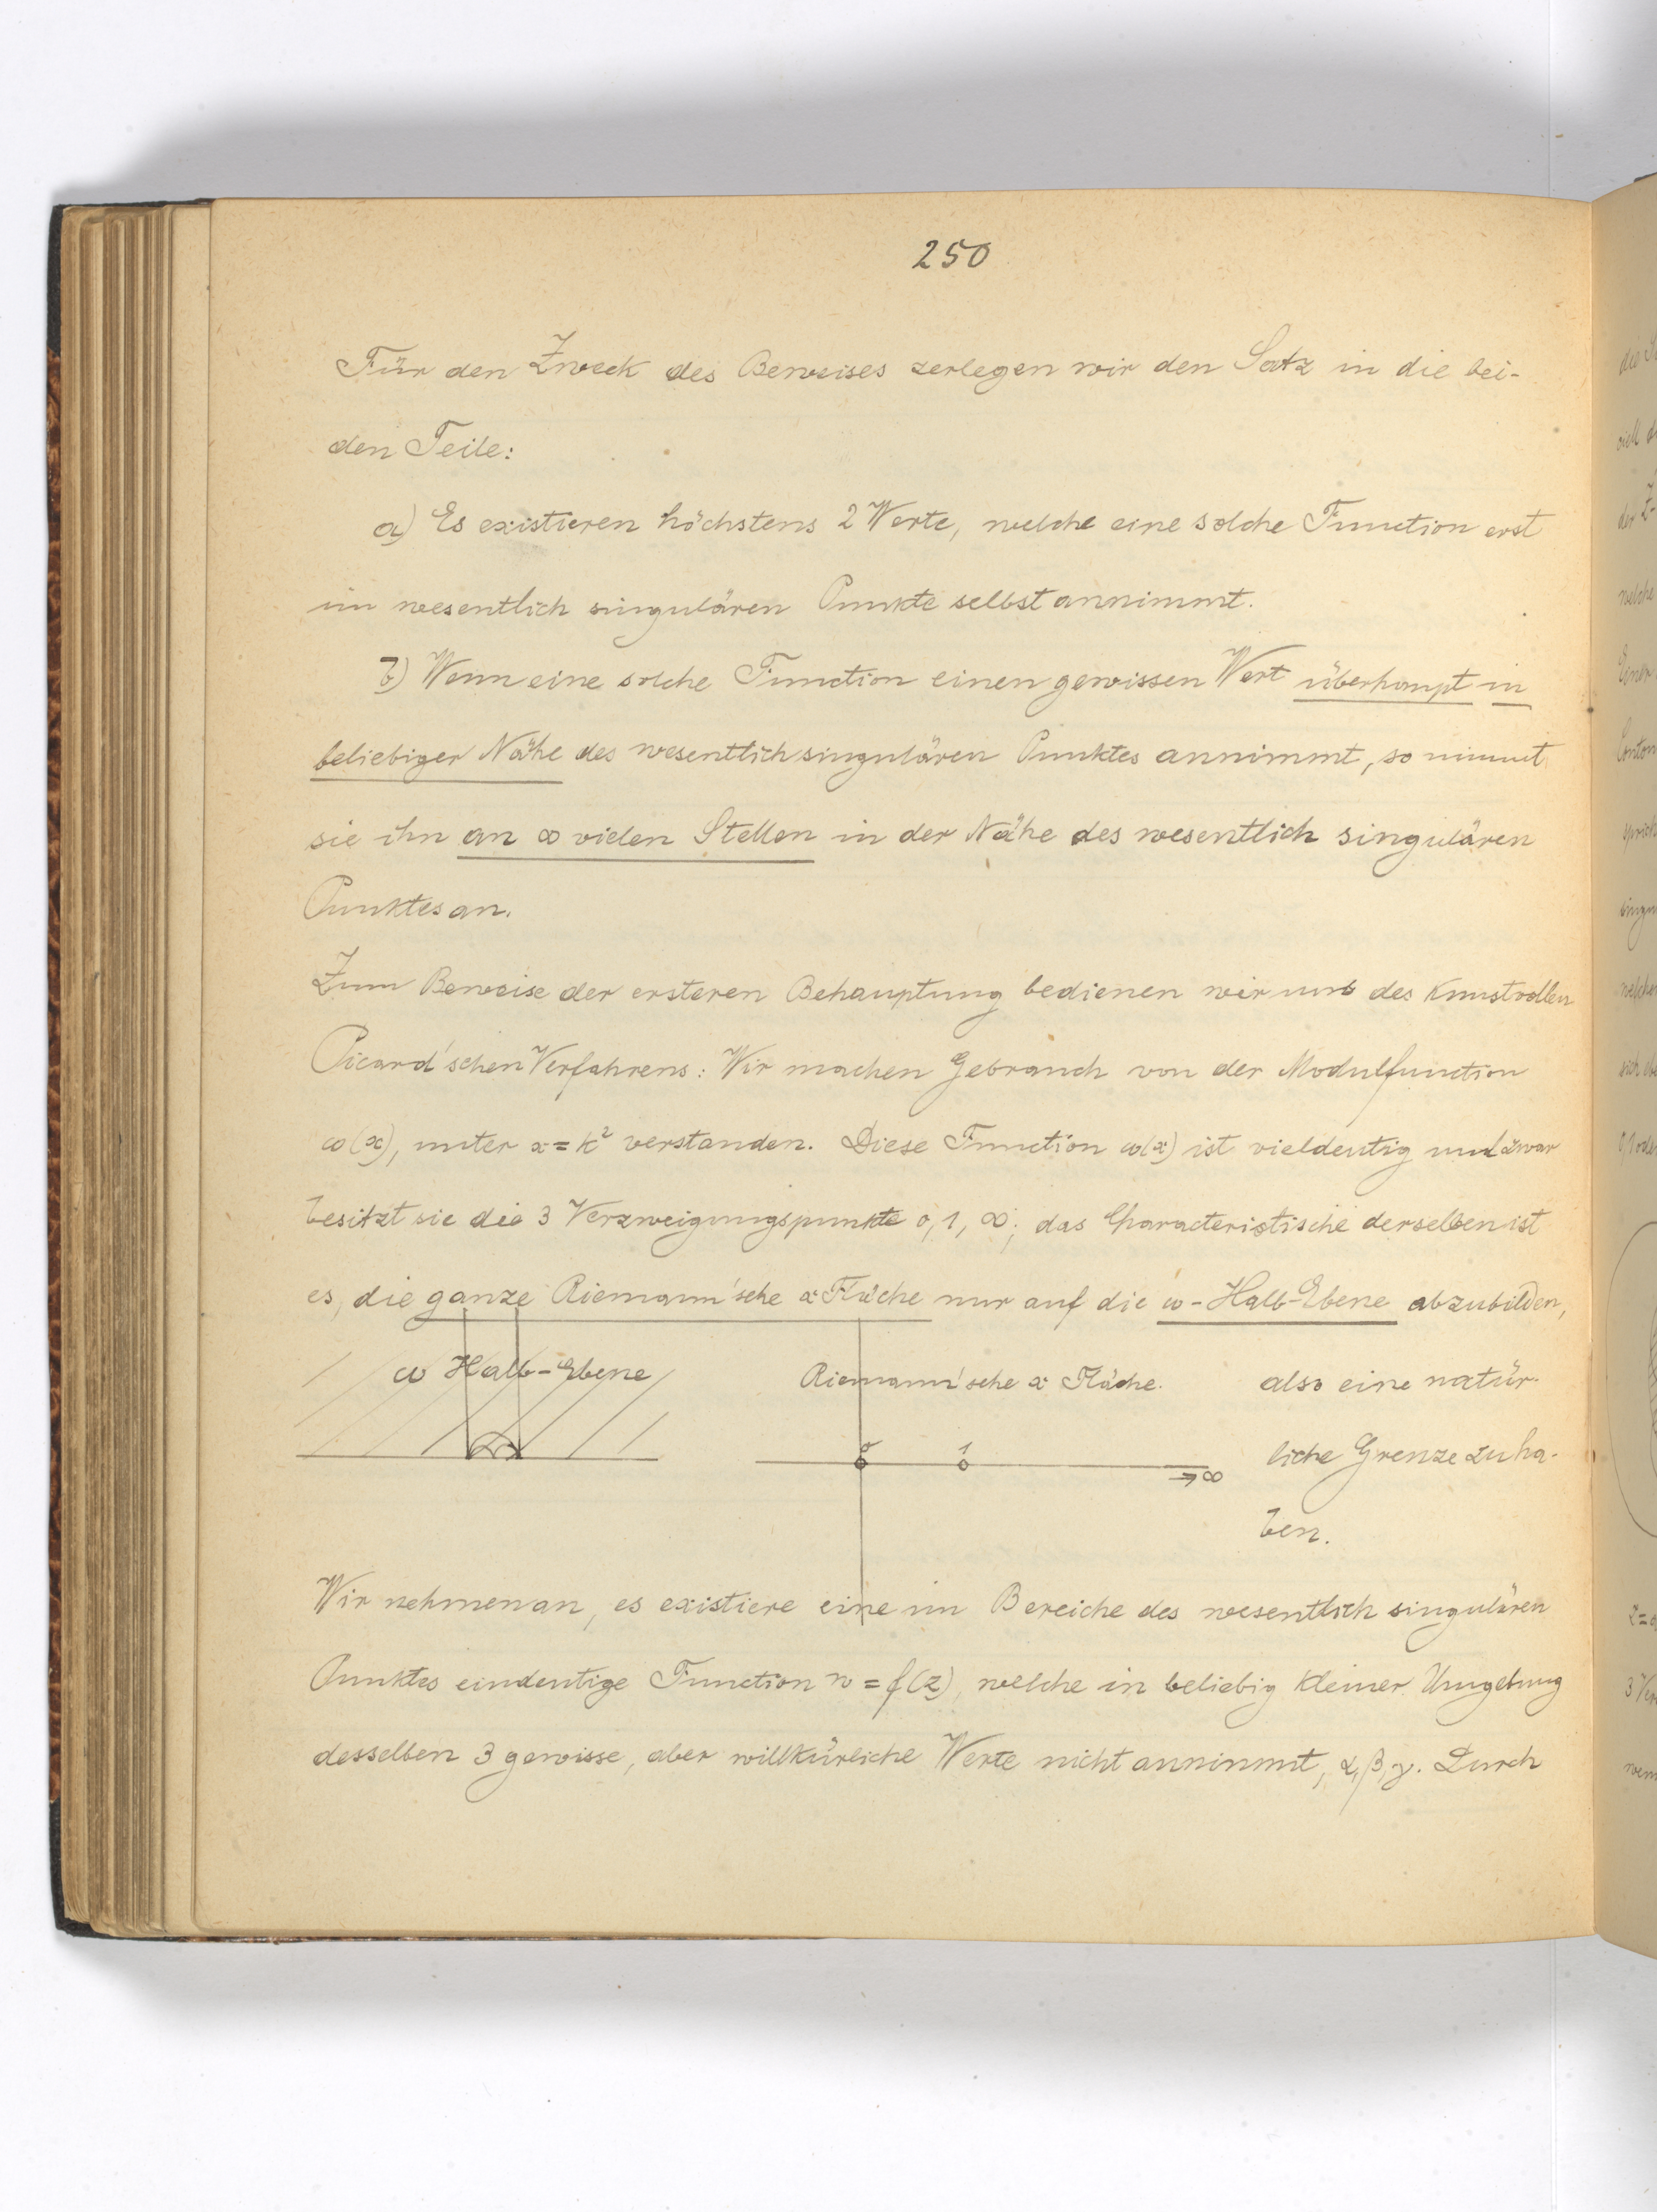 250
Für den Zweck des Beweises zerlegen wir den Satz in die bei-
den Teile:
a) Es existieren höchstens 2 Werte, welche eine solche Function erst
im wesentlich singulären Punkte selbst annimmt.
b) Wenn eine solche Function einen gewissen Wert überhaupt in
beliebiger Nähe des wesentlich singulären Punktes annimmt, so nimmt
sie ihn an ∞ vielen Stellen in der Nähe des wesentlich singulären
Punktes an.
Zum Beweise der ersteren Behauptung bedienen wir uns des kunstvollen
Picard'schen Verfahrens: Wir machen Gebrauch von der Modulfunction
ω(x), unter x = k² verstanden. Diese Function ω(x) ist vieldeutig und zwar
besitzt sie die 3 Verzweigungspunkte 0, 1, ∞; das Characteristische derselben ist
es, die ganze Riemann'sche x Fläche nur auf die ω-Halb-Ebene abzubilden,
ω Halb-Ebene
Riemann'sche x Fläche.
0 1
∞
also eine natür-
liche Grenze zu ha-
ben.
Wir nehmen an, es existiere eine im Bereiche des wesentlich singulären
Punktes eindeutige Function w = f(z), welche in beliebig kleiner Umgebung
desselben 3 gewisse, aber willkürliche Werte nicht annimmt, α, β, γ. Durch